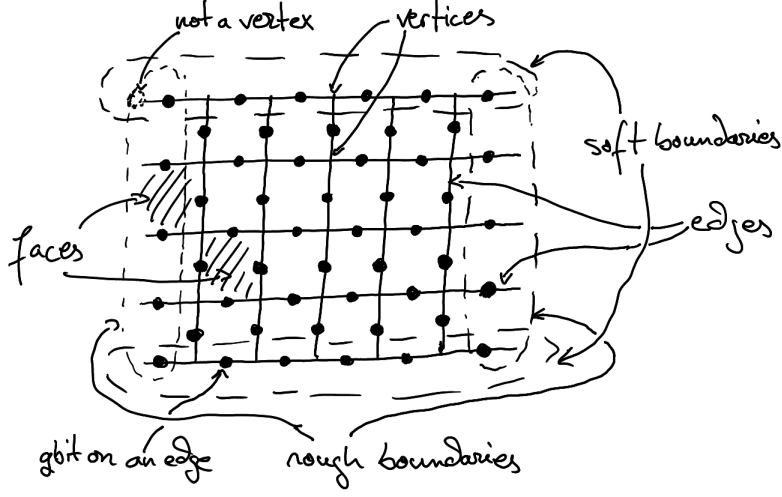 not a vertex
vertices
soft boundaries
edges
faces
qbit on an edge
rough boundaries